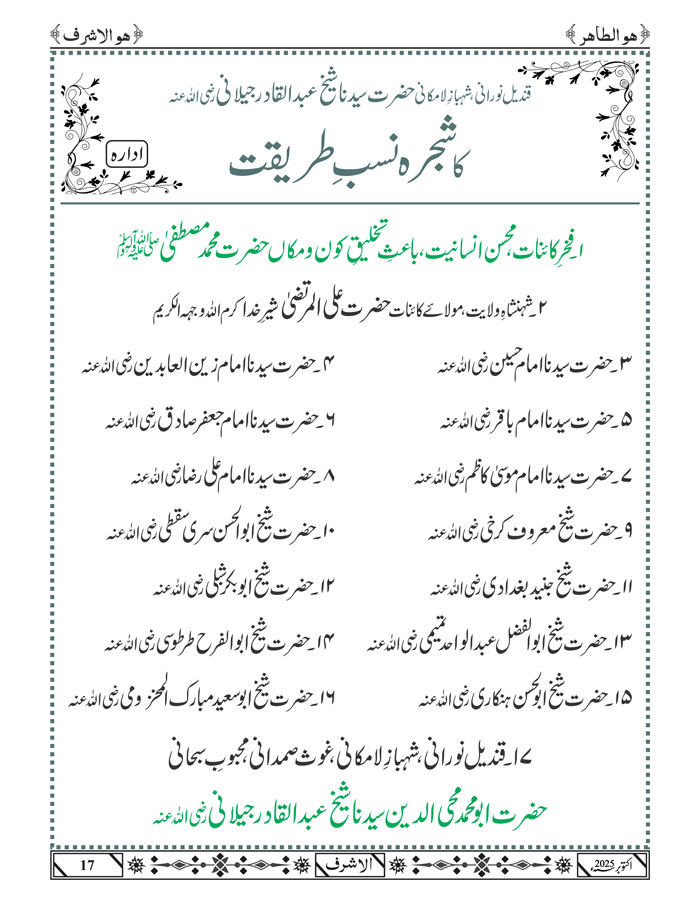 ﴿ھو الطاہر﴾ ﴿ھو الاشرف﴾
قندیل نورانی، شہبازِ لامکانی حضرت سیدنا شیخ عبدالقادر جیلانی رضی اللہ عنہ
کا شجرہ نسبِ طریقت
ادارہ
۱۔ فخرِ کائنات، محسن انسانیت، باعثِ تخلیقِ کون و مکاں حضرت محمد مصطفیٰ ﷺ
۲۔ شہنشاہِ ولایت، مولائے کائنات حضرت علی المرتضیٰ شیرِ خدا کرم اللہ وجہہ الکریم
۳۔ حضرت سیدنا امام حسین رضی اللہ عنہ ۴۔ حضرت سیدنا امام زین العابدین رضی اللہ عنہ
۵۔ حضرت سیدنا امام باقر رضی اللہ عنہ ۶۔ حضرت سیدنا امام جعفر صادق رضی اللہ عنہ
۷۔ حضرت سیدنا امام موسیٰ کاظم رضی اللہ عنہ ۸۔ حضرت سیدنا امام علی رضا رضی اللہ عنہ
۹۔ حضرت شیخ معروف کرخی رضی اللہ عنہ ۱۰۔ حضرت شیخ ابوالحسن سری سقطی رضی اللہ عنہ
۱۱۔ حضرت شیخ جنید بغدادی رضی اللہ عنہ ۱۲۔ حضرت شیخ ابوبکر شبلی رضی اللہ عنہ
۱۳۔ حضرت شیخ ابوالفضل عبدالواحد تمیمی رضی اللہ عنہ ۱۴۔ حضرت شیخ ابوالفرح طرطوسی رضی اللہ عنہ
۱۵۔ حضرت شیخ ابوالحسن ہنکاری رضی اللہ عنہ ۱۶۔ حضرت شیخ ابوسعید مبارک المخزومی رضی اللہ عنہ
۱۷۔ قندیل نورانی، شہبازِ لامکانی، غوث صمدانی، محبوبِ سبحانی
حضرت ابو محمد محی الدین سیدنا شیخ عبدالقادر جیلانی رضی اللہ عنہ
اکتوبر 2025ء الاشرف 17